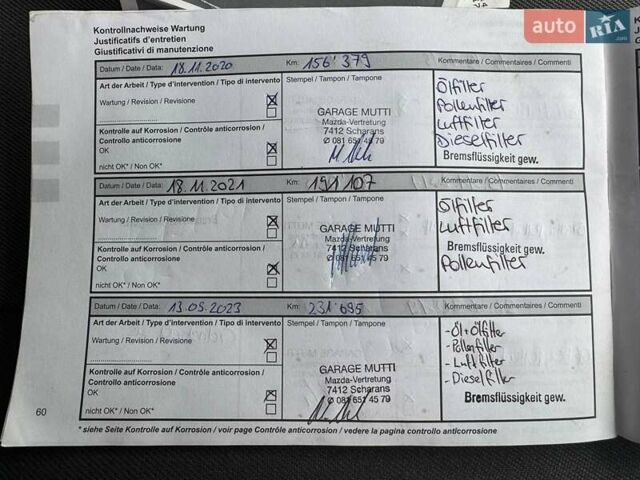 auto RIA.com
Kontrollnachweise Wartung
Justificatifs d'entretien
Giustificativi di manutenzione
Datum / Date / Data: 18.11.2020 Km: 156'379 Kommentare / Commentaires / Commenti
Art der Arbeit / Type d'intervention / Tipo di intervento Stempel / Tampon / Tampone
Ölfilter
Wartung / Revision / Revisione
Pollenfilter
Luftfilter
Dieselfilter
Bremsflüssigkeit gew.
GARAGE MUTTI
Mazda-Vertretung
7412 Scharans
✆ 081 651 45 79
Kontrolle auf Korrosion / Contrôle anticorrosion /
Controllo anticorrosione
OK
nicht OK* / Non OK*
Datum / Date / Data: 18.11.2021 Km: 191'107 Kommentare / Commentaires / Commenti
Art der Arbeit / Type d'intervention / Tipo di intervento Stempel / Tampon / Tampone
Ölfilter
Wartung / Revision / Revisione
Luftfilter
Bremsflüssigkeit gew.
Pollenfilter
GARAGE MUTTI
Mazda-Vertretung
7412 Scharans
✆ 081 651 45 79
Kontrolle auf Korrosion / Contrôle anticorrosion /
Controllo anticorrosione
OK
nicht OK* / Non OK*
Datum / Date / Data: 13.05.2023 Km: 231'695 Kommentare / Commentaires / Commenti
Art der Arbeit / Type d'intervention / Tipo di intervento Stempel / Tampon / Tampone
- Öl+Ölfilter
Wartung / Revision / Revisione
- Pollenfilter
- Luftfilter
- Dieselfilter
Bremsflüssigkeit gew.
GARAGE MUTTI
Mazda-Vertretung
7412 Scharans
✆ 081 651 45 79
Kontrolle auf Korrosion / Contrôle anticorrosion /
Controllo anticorrosione
OK
nicht OK* / Non OK*
60
* siehe Seite Kontrolle auf Korrosion / voir page Contrôle anticorrosion / vedere la pagina controllo anticorrosione